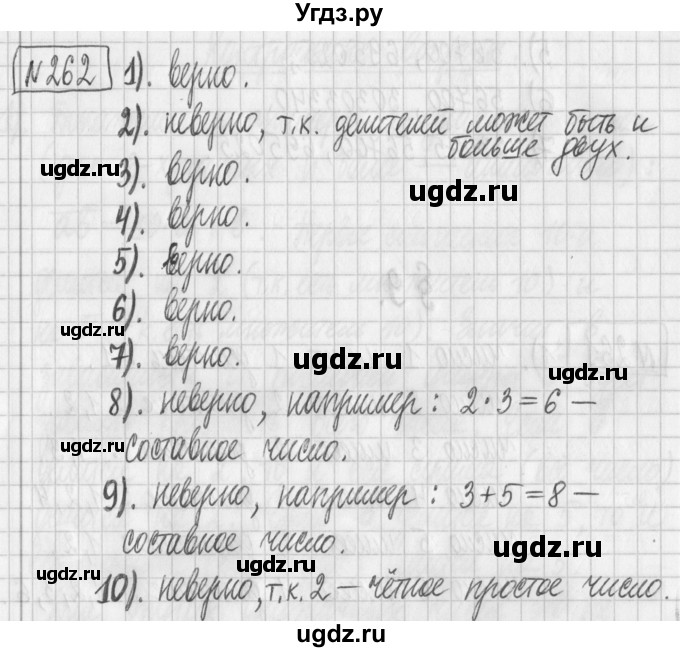 Угдз.ру
№262 1). верно.
2). неверно, т.к. делителей может быть и
больше двух.
3). верно.
ugdz.ru
ugdz.ru
4). верно.
ugdz.ru
5). верно.
6). верно.
ugdz.ru
7). верно.
ugdz.ru
ugdz.ru
8). неверно, например: 2·3=6 —
составное число.
ugdz.ru
9). неверно, например: 3+5=8 —
составное число.
ugdz.ru
ugdz.ru
ugdz.ru
10). неверно, т.к. 2 — чётное простое число.
ugdz.ru
ugdz.ru